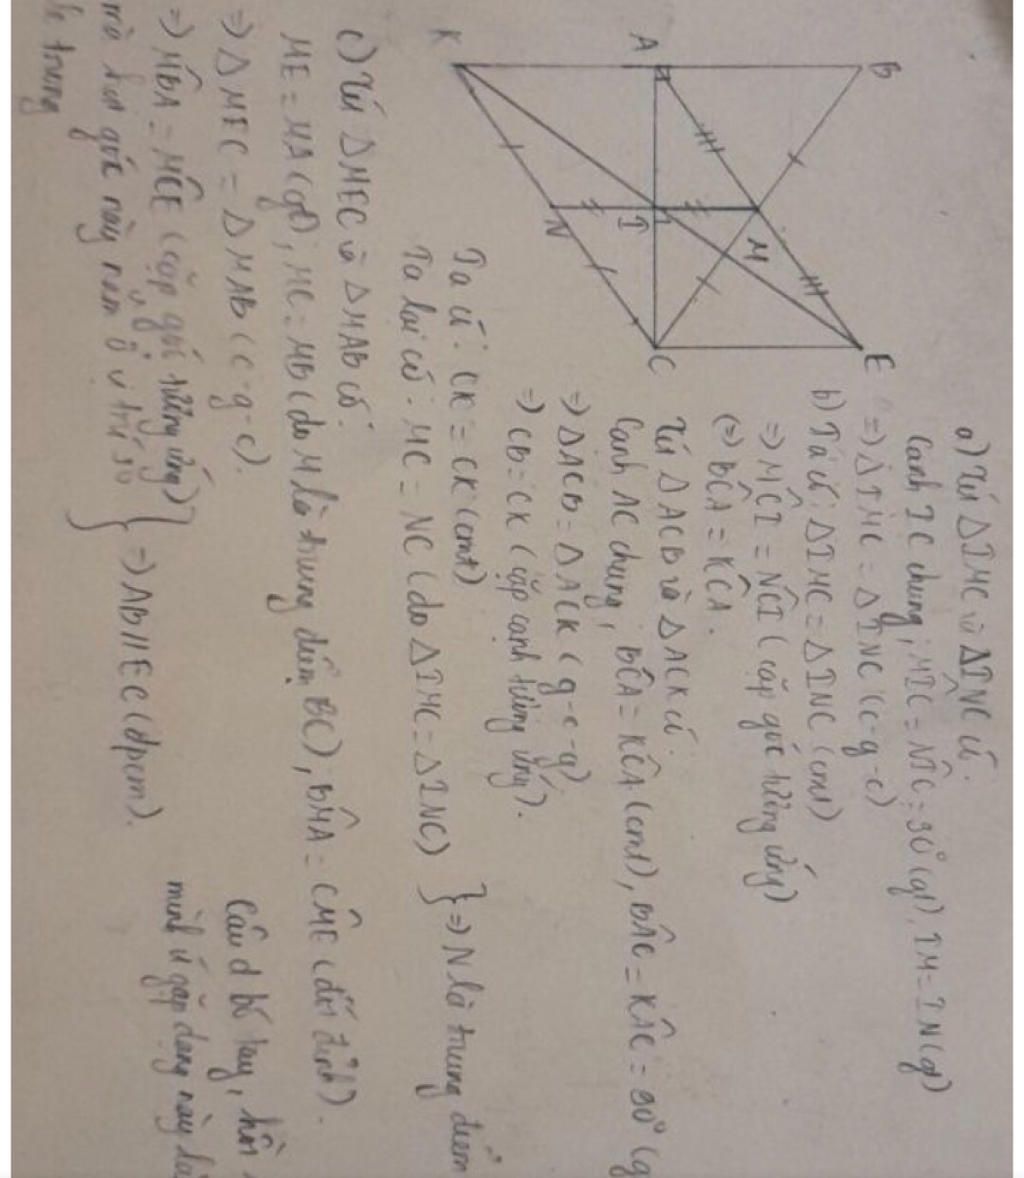 B
A
K
M
I
N
E
C
a) Xét ΔIMC và ΔINC có.
Cạnh IC chung, MÎC = NÎC = 90° (gt), IM = IN (gt)
=> ΔIMC = ΔINC (c-g-c)
b) Ta có: ΔIMC = ΔINC (cmt)
=> MĈI = NĈI (cặp góc tương ứng)
(=> BĈA = KĈA.
Xét ΔACB và ΔACK có.
Cạnh AC chung, BĈA = KĈA (cmt), BÂC = KÂC = 90° (g
=> ΔACB = ΔACK (g-c-g)
=> CB = CK (cặp cạnh tương ứng).
Ta có: CK = CK (cmt)
Ta lại có: MC = NC (do ΔIMC = ΔINC) } => N là trung điểm
c) Xét ΔMEC và ΔMAB có.
ME = MA (gt), MC = MB (do M là trung điểm BC), BM̂A = CM̂E (đối đỉnh).
=> ΔMEC = ΔMAB (c-g-c).
=> MB̂A = MĈE (cặp góc tương ứng)
mà hai góc này nằm ở vị trí so } => AB // EC (đpcm).
le trong
Câu d bó tay, hồi
mình ít gặp dạng này